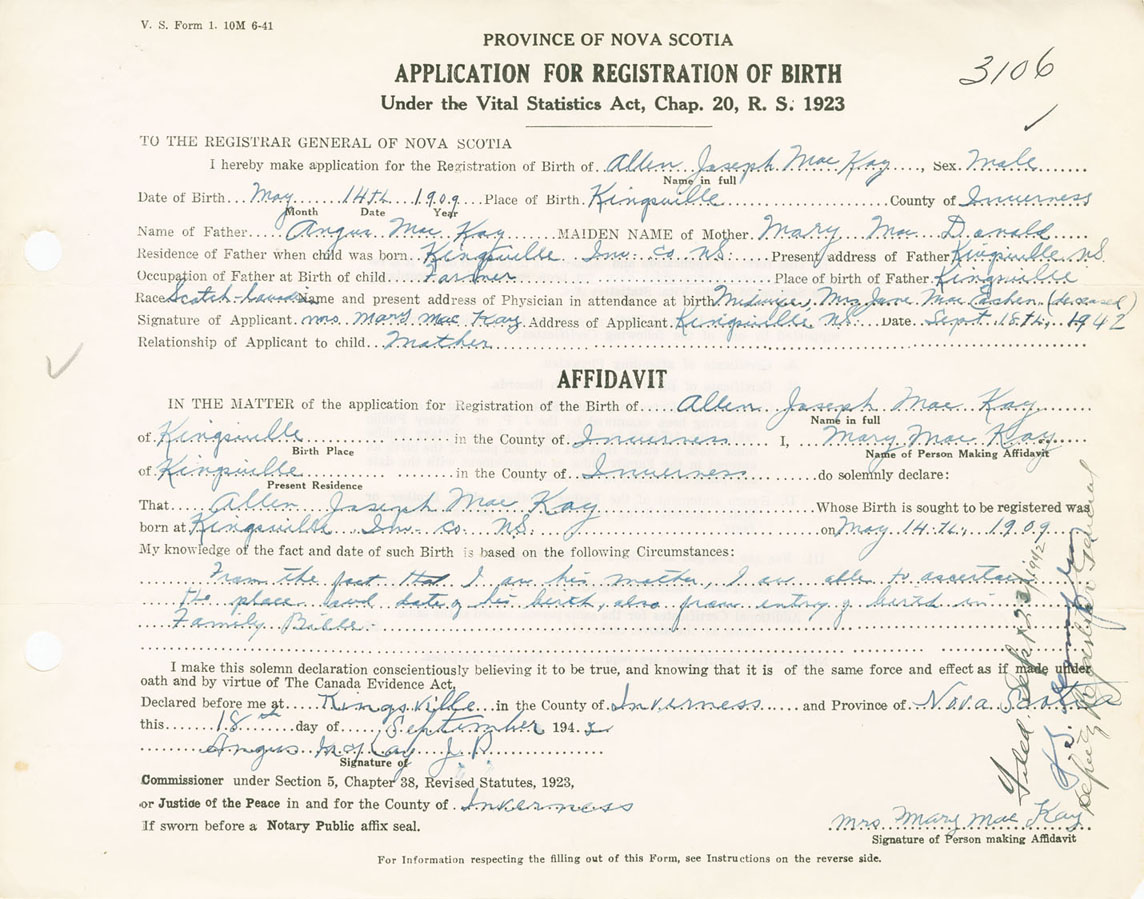 V. S. Form 1. 10M 6-41
PROVINCE OF NOVA SCOTIA
3106
APPLICATION FOR REGISTRATION OF BIRTH
Under the Vital Statistics Act, Chap. 20, R. S. 1923
TO THE REGISTRAR GENERAL OF NOVA SCOTIA
I hereby make application for the Registration of Birth of Allen Joseph Mac Kay, Sex Male
Name in full
Date of Birth May 14th 1909 Place of Birth Kingsville County of Inverness
Month Date Year
Name of Father Angus Mac Kay MAIDEN NAME of Mother Mary Mac Donald
Residence of Father when child was born Kingsville Inv. co. NS. Present address of Father Kingsville N.S.
Occupation of Father at Birth of child Farmer Place of birth of Father Kingsville
Race Scotch Name and present address of Physician in attendance at birth Midwife, Mrs Jane Mac (deceased)
Signature of Applicant mrs. Mary Mac Kay Address of Applicant Kingsville, N.S. Date Sept. 18th, 1942
Relationship of Applicant to child Mother
AFFIDAVIT
IN THE MATTER of the application for Registration of the Birth of Allen Joseph Mac Kay
Name in full
of Kingsville in the County of Inverness I, Mary Mac Kay
Birth Place Name of Person Making Affidavit
of Kingsville in the County of Inverness do solemnly declare:
Present Residence
That Allen Joseph Mac Kay Whose Birth is sought to be registered was
born at Kingsville Inv. co. NS. on May 14th, 1909
My knowledge of the fact and date of such Birth is based on the following Circumstances:
From the fact that I am his mother, I am able to ascertain
the place and date of his birth, also from entry of birth in
Family Bible
I make this solemn declaration conscientiously believing it to be true, and knowing that it is of the same force and effect as if made under
oath and by virtue of The Canada Evidence Act,
Declared before me at Kingsville in the County of Inverness and Province of Nova Scotia
this 18th day of September 1942
Angus McKay J. P.
Signature of
Commissioner under Section 5, Chapter 38, Revised Statutes, 1923,
or Justice of the Peace in and for the County of Inverness
If sworn before a Notary Public affix seal.
Mrs Mary Mac Kay
Signature of Person making Affidavit
For Information respecting the filling out of this Form, see Instructions on the reverse side.
Filed Sept 23rd, 1942
Deputy Registrar General